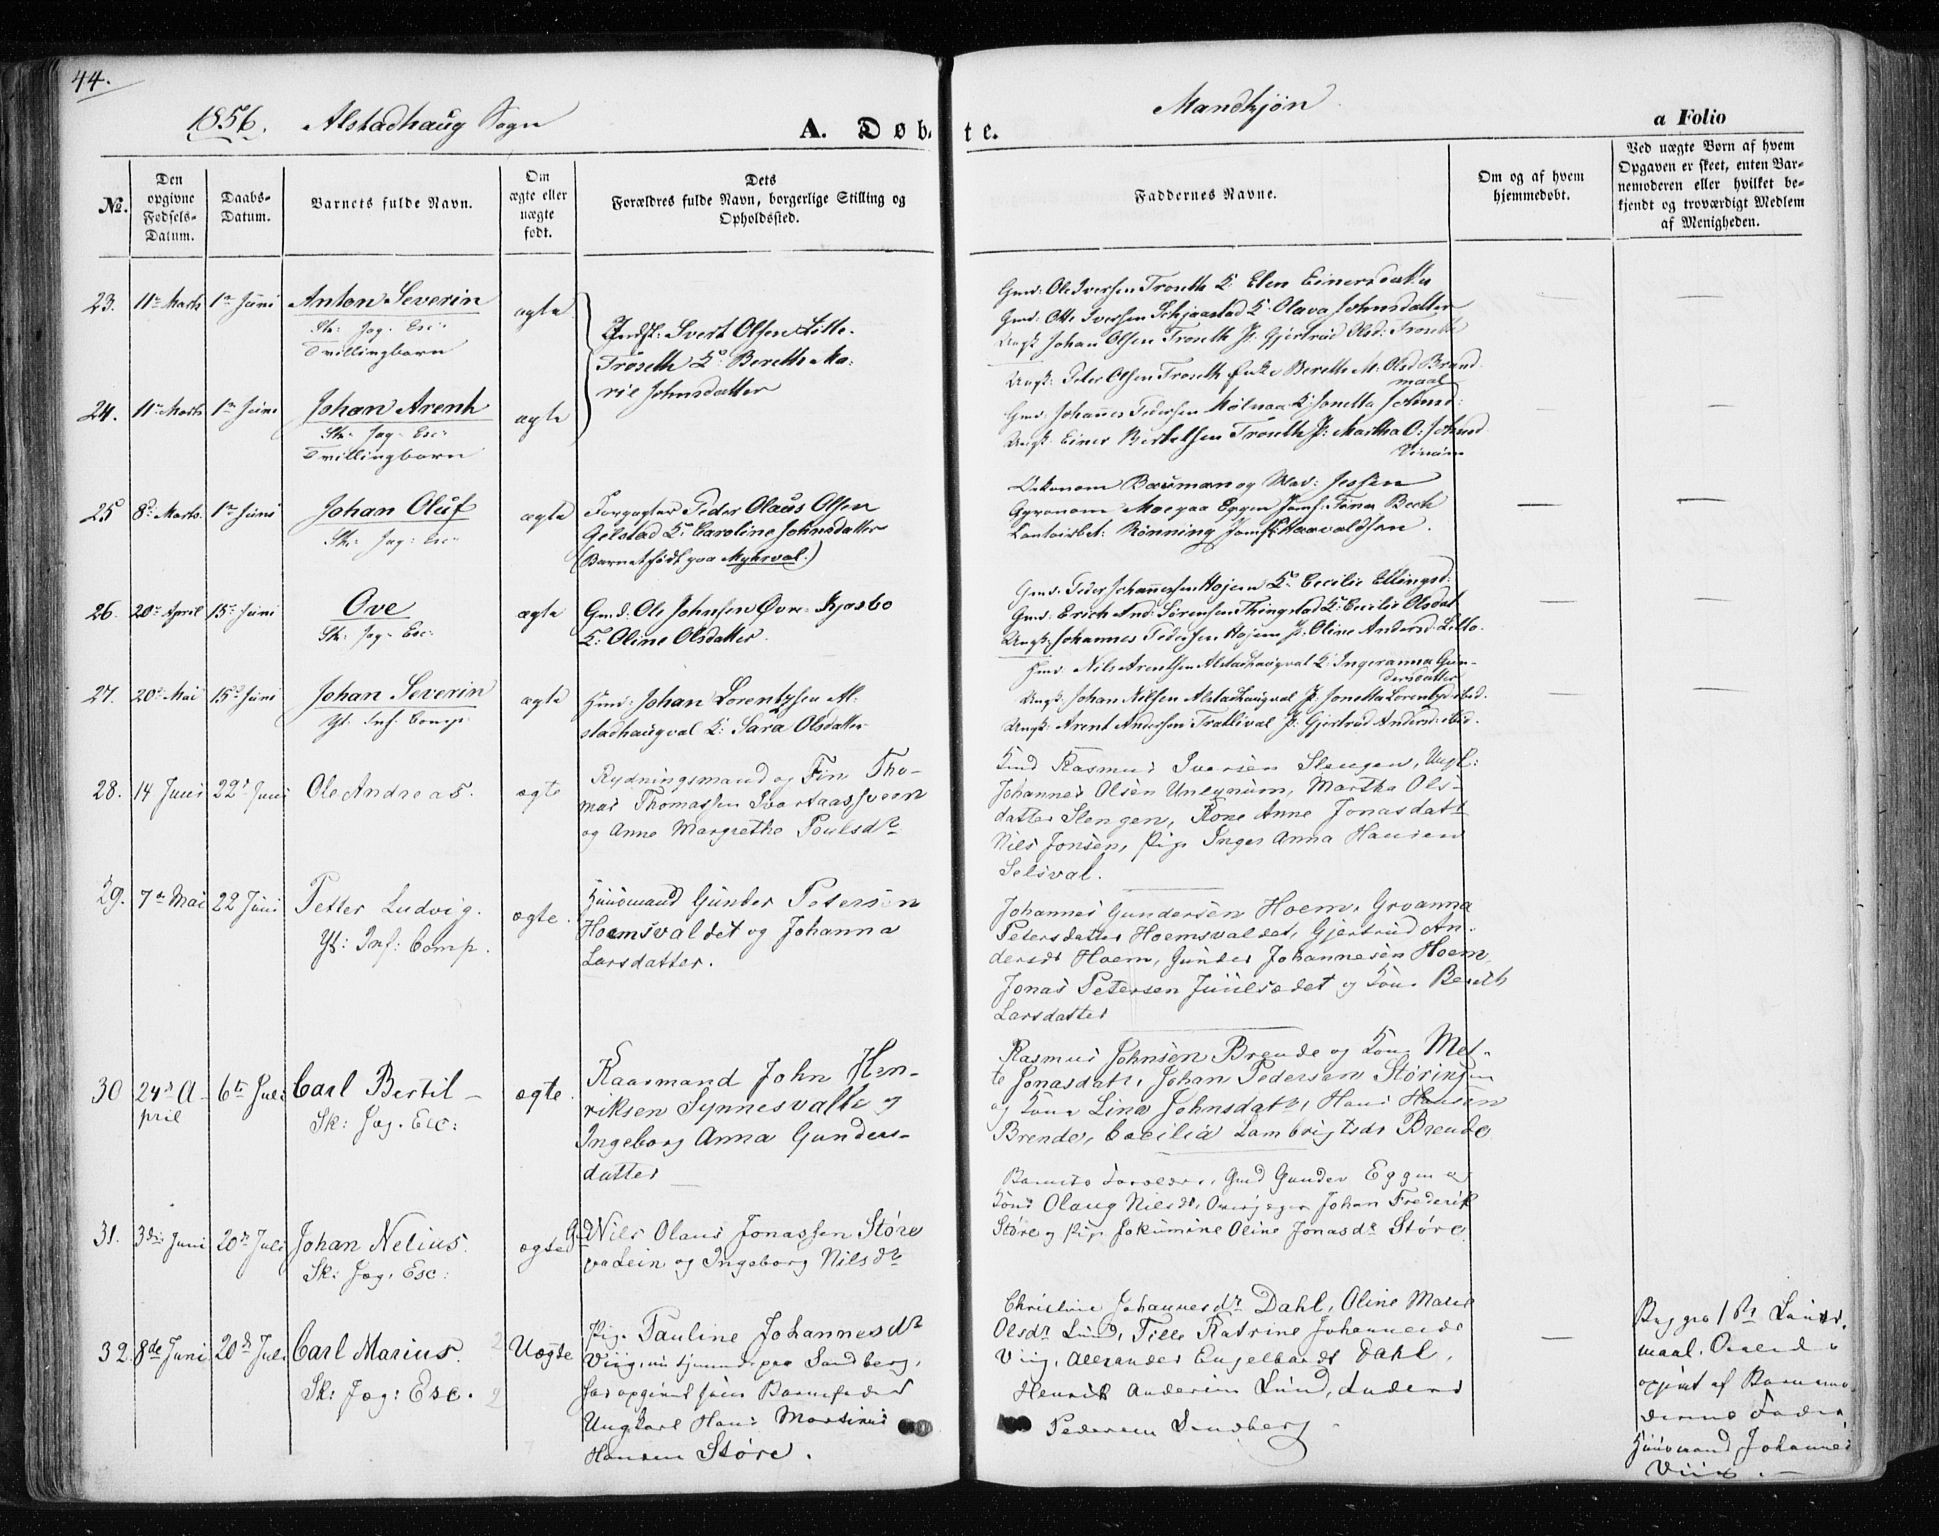 44.
1856. Alstadhaug Sogn
A. Døbte.
Mandkjøn
a Folio
No.
Den opgivne Fødsels-Datum.
Daabs-Datum.
Barnets fulde Navn.
Om ægte eller uægte født.
Dets Forældres fulde Navn, borgerlige Stilling og Opholdssted.
Faddernes Navne.
Om og af hvem hjemmedøbt.
Ved uægte Børn af hvem Opgaven er skeet, enten Barnemoderen eller hvilket bekjendt og troværdigt Medlem af Menigheden.
23. 11te Marts 1te Juni Anton Severin ægte
Sk: Jag. Esc:
Tvillingbarn
Indst: Svert Olsen Lille-
Troseth K: Bereth Ma-
rie Johnsdatter
Gmd: Ole Iversen Troseth K: Elen Einersdatter
Gmd: Otte Iversen Schjaastad K: Olava Johnsdatter
Ungk: Johan Olsen Troseth P: Gjertrud Olsd: Troseth
24. 11te Marts 1te Juni Johan Arent ægte
Sk: Jag. Esc:
Tvillingbarn
Ungk: Peter Olsen Troseth Enke Bereth M: Olsd Brand
maal
Gmd: Johannes Pedersen Mølnaa K: Jonetta Johnsd:
Ungk: Einer Bertelsen Troseth P: Martha O: Johnsd
25 8de Marts 1te Juni Johan Oluf ægte
Sk: Jag: Esc:
Forpagter Peder Olaus Olsen
Gjelstad K: Caroline Johnsdatter
(Barnet født paa Myhrval.)
Oekonom Bauman og Mad: Jessen
Agronom Moegaa Eggen Jomf: Tina Bech
Contoirbet: Rønning Jomf: Haavaldsen.
26. 20de April 15de Juni Ove ægte
Sk: Jag. Esc:
Gmd: Ole Johnsen Øvre Kjesbo
K: Oline Olsdatter.
Gmd: Peder Johannesen Hojem K: Cecilie Ellingsd:
Gmd: Erich And: Sørensen Thingstad K: Cecilie Olsdat
Ungk: Johannes Pedersen Hojem P: Oline Andersd:
27. 20de Mai 15de Juni Johan Severin ægte
Yt. Inf. Comp
Hmd: Johan Lorentzsen Al-
stadhaugval K: Sara Olsdatter
Hmd: Nils Arentsen Alstadhaugval K: Ingeranna Gun-
dersdatter
Ungk: Johan Nilsen Alstadhaugval P: Jonetta Lorentzd ibid.
Ungk: Arent Andersen Tratlival P: Gjertrud Andersd: ibid.
28. 14 Juni 22de Juni Ole Andreas. ægte
Rydningsmand og Fin Tho-
mas Thomassen Svartaassveen
og Anne Margrethe Poulsdr
Rasmus Iversen Slengen, Ungk:
Johannes Olsen Unlynum, Martha Ols-
datter Slengen, Kone Anne Jonasdatr
Nils Jonsen, Pige Inger Anna Hansen
Selsval.
29. 7de Mai 22 Juni Petter Ludvig. ægte.
Yt: Inf: Comp.
Huusmand Gunder Petersen
Hoemsvaldet og Johanna
Larsdatter.
Johannes Gundersen Hoem, Groanna
Petersdatter Hoemsvaldet, Gjertrud An-
dersdr Hoem, Gunder Johannesen Hoem,
Jonas Petersen Juulsædet og Kone Bereth
Larsdatter
30 24de A-
pril 6te Juli Carl Bertil ægte.
Sk: Jag. Esc:
Kaarmand John Hen-
riksen Synnesvalle og
Ingeborg Anna Gunders-
datter
Rasmus Johnsen Brende og Kone Met-
te Jonasdatr, Johan Pedersen Støringen
og Kone Lina Johnsdatr, Hans Hansen
Brende, Cæcilia Lambrigtsdr Brende.
31. 3die Juni 20de Juli Johan Nelius. ægte
Sk: Jag. Esc:
Gmd Nils Olaus Jonassen Støre
vadein og Ingeborg Nilsdr
Barnets Forældre, Gmd Gunder Eggen og
Kone Olaug Nilsdr, Overjæger Johan Frederik
Støre og Pige Jokumine Oline Jonasdr Støre.
32. 8de Juni 20de Juli Carl Marius. Uægte
Sk: Jag: Esc.
Pige Pauline Johannesdr
Viig, nu tjenende paa Sandberg,
har opgivet som Barnefader
Ungkarl Hans Martinus
Hansen Støre.
Christine Johannesdr Dahl, Oline Marie
Olsdr Lund, Tille Katrine Johannesdr
Viig, Alexander Engelbardt Dahl,
Henrik Andersen Lund, Anders
Pedersen Sandberg
Begges 1ste Leier-
maal. Ovenst
opgivet af Barnemo-
derens Fader,
Huusmand Johannes
Viig.